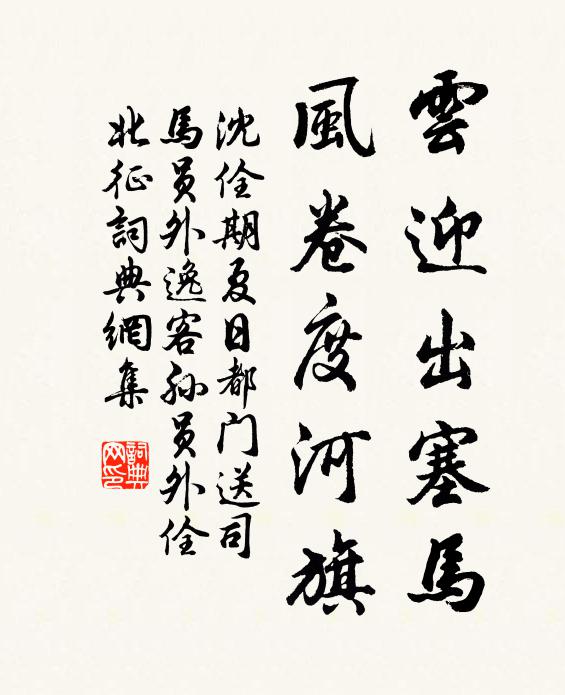 雲迎出塞馬
風卷度河旗
沈佺期夏日都门送司
馬员外逸客孙员外佺
北征詞典網集
詞典
网印